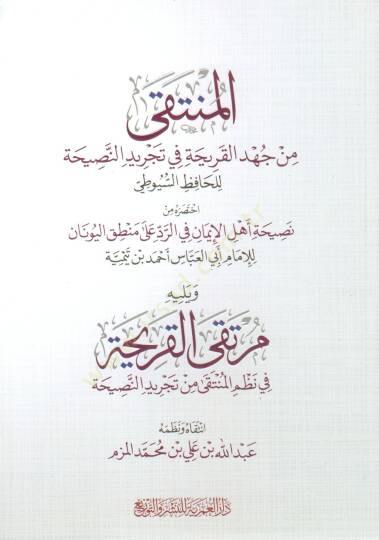 المنتقى
مِنْ جُهْدِ القَرِيحَةِ فِي تَجْرِيدِ النَّصِيحَة
لِلحَافِظِ السُّيُوطِيّ
اخْتَصَرَهُ مِنْ
نَصِيحَةِ أَهْلِ الإِيمَانِ فِي الرَّدِّ عَلَى مَنْطِقِ اليُونَانِ
لِلإِمَامِ أَبِي العَبَّاسِ أَحْمَد بْن تَيْمِيَّة
وَيَلِيهِ
مُرْتَقَى القَرِيحَةِ
فِي نَظْمِ المُنْتَقَى مِنْ تَجْرِيدِ النَّصِيحَة
انْتَقَاهُ وَنَظَمَهُ
عَبْدُ اللهِ بن عَلِي بن مُحَمَّد المزم
دار العمرية للنشر والتوزيع